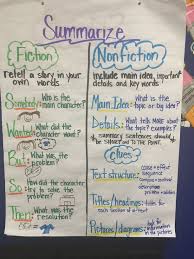 Summarize
Fiction
Retell a story in your
own words
Somebody: Who is the
main character?
Wanted: What did the
character want?
But: What was the
problem?
So: How did the character
try to solve the
problem?
Then: What was the
resolution?
Nonfiction
include main idea, important
details and key words!
Main Idea: What is the
topic or big idea?
Details: What tells more about
the topic? examples?
summary sentences should
be SHORT and TO THE POINT.
Clues
Text structure:
cause + effect
sequence
compare
contrast
problem +
solution
Titles/headings:
for each section of a text
Pictures/diagrams
information
in the pictures